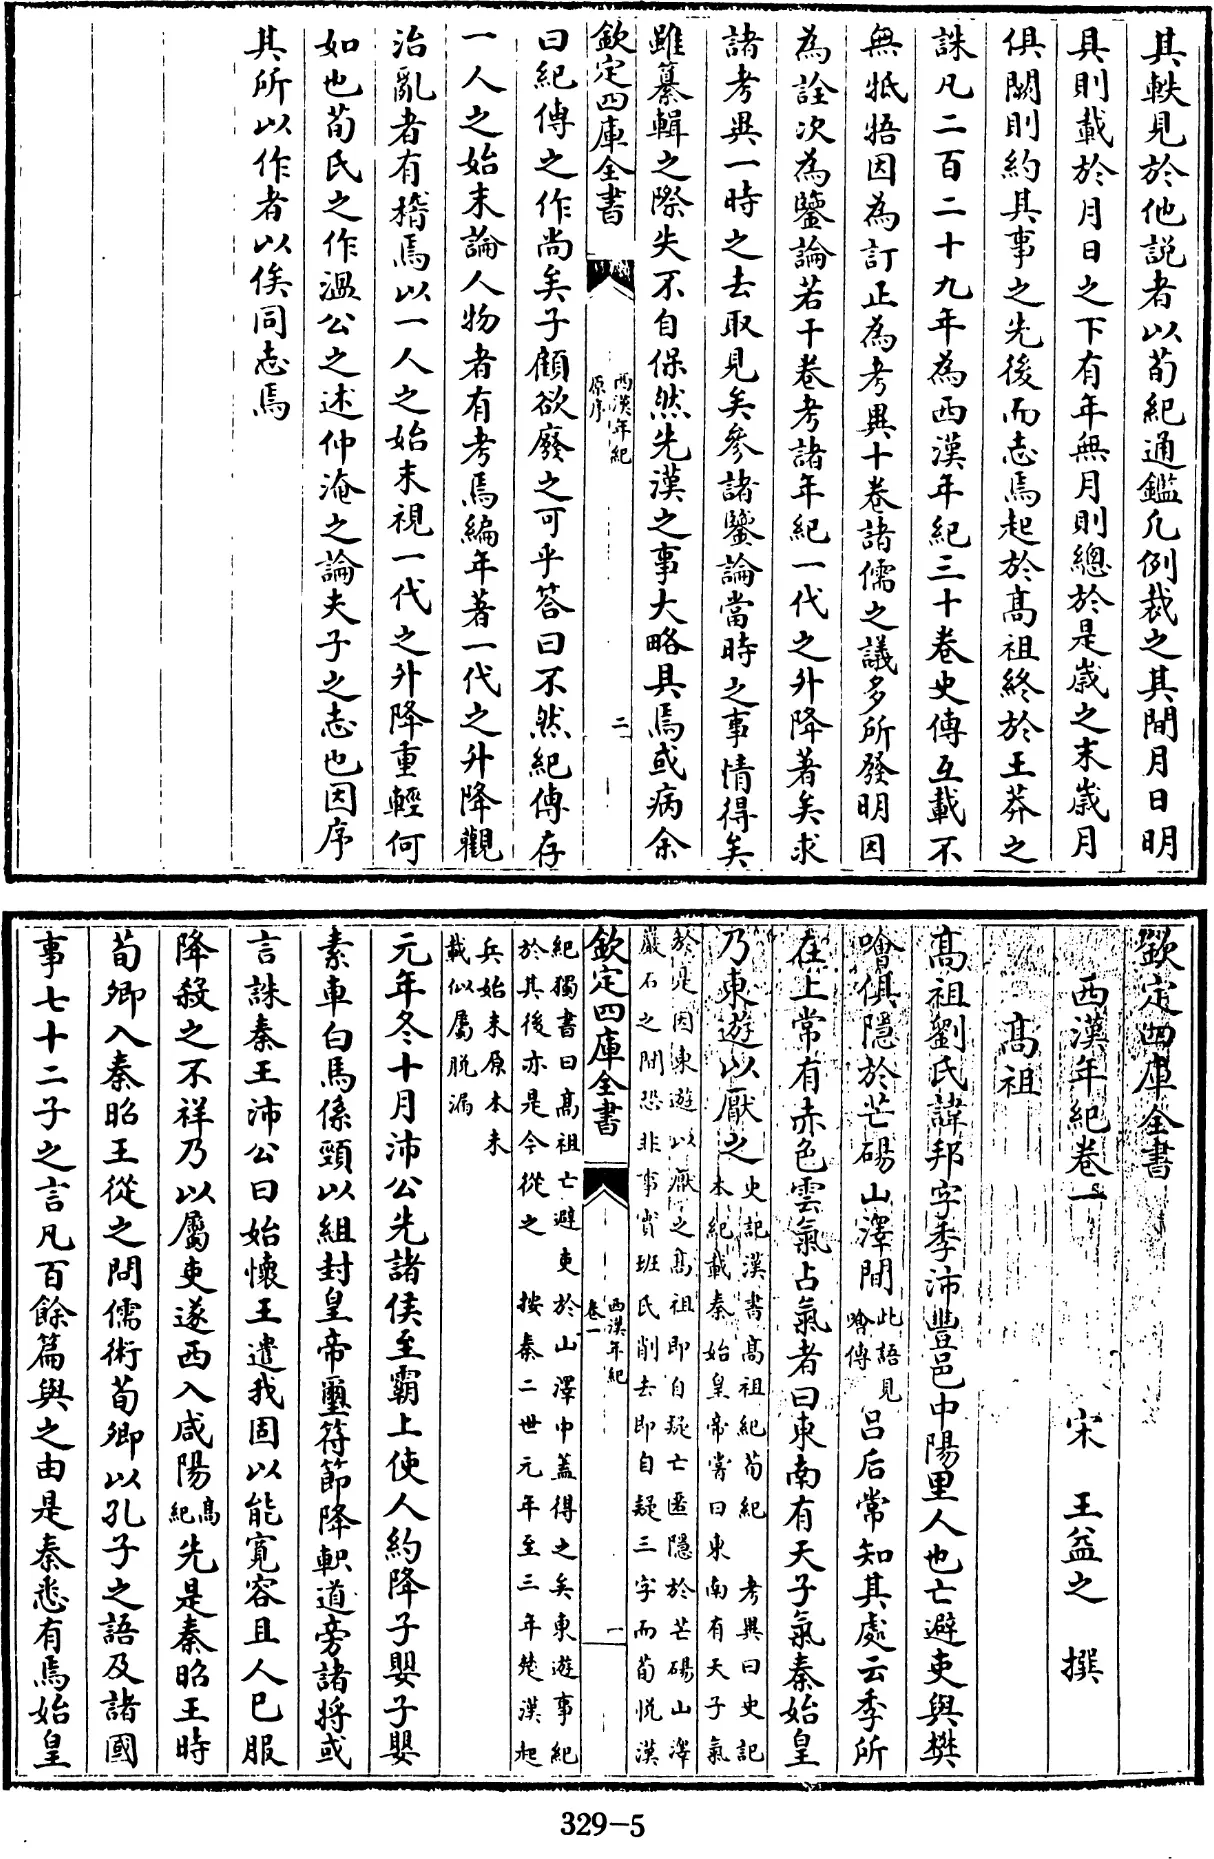 其軼見於他説者以荀紀通鑑凡例裁之其間月日明
具則載於月日之下有年無月則總於是歲之末歲月
俱闕則約其事之先後而志焉起於髙祖終於王莽之
誅凡二百二十九年為西漢年紀三十卷史傳互載不
無牴牾因為訂正為考異十卷諸儒之議多所發明因
為詮次為鑒論若干卷考諸年紀一代之升降著矣求
諸考異一時之去取見矣參諸鑒論當時之事情得矣
雖纂輯之際失不自保然先漢之事大略具焉或病余
欽定四庫全書
西漢年紀
原序
二
曰紀傳之作尚矣子顧欲廢之可乎答曰不然紀傳存
一人之始末論人物者有考焉編年著一代之升降觀
治亂者有稽焉以一人之始末視一代之升降重輕何
如也荀氏之作温公之述仲淹之論夫子之志也因序
其所以作者以俟同志焉
欽定四庫全書
西漢年紀卷一
宋 王益之 撰
髙祖
髙祖劉氏諱邦字季沛豐邑中陽里人也亡避吏與樊
噲俱隱於芒碭山澤間此語見噲傳吕后常知其處云季所
在上常有赤色雲氣占氣者曰東南有天子氣秦始皇
乃東遊以厭之史記漢書髙祖紀荀紀 考異曰史記
本紀載秦始皇帝嘗曰東南有天子氣
於是因東遊以厭之髙祖即自疑亡匿隱於芒碭山澤
巖石之間恐非事實班氏削去即自疑三字而荀悦漢
欽定四庫全書
西漢年紀
卷一
一
紀獨書曰髙祖亡避吏於山澤中蓋得之矣東遊事紀
於其後亦是今從之 按秦二世元年至三年楚漢起
兵始末原本未
載似屬脱漏
元年冬十月沛公先諸侯至霸上使人約降子嬰子嬰
素車白馬係頸以組封皇帝璽符節降軹道旁諸將或
言誅秦王沛公曰始懷王遣我固以能寛容且人已服
降殺之不祥乃以屬吏遂西入咸陽髙紀先是秦昭王時
荀卿入秦昭王從之問儒術荀卿以孔子之語及諸國
事七十二子之言凡百餘篇與之由是秦悉有焉始皇
329-5